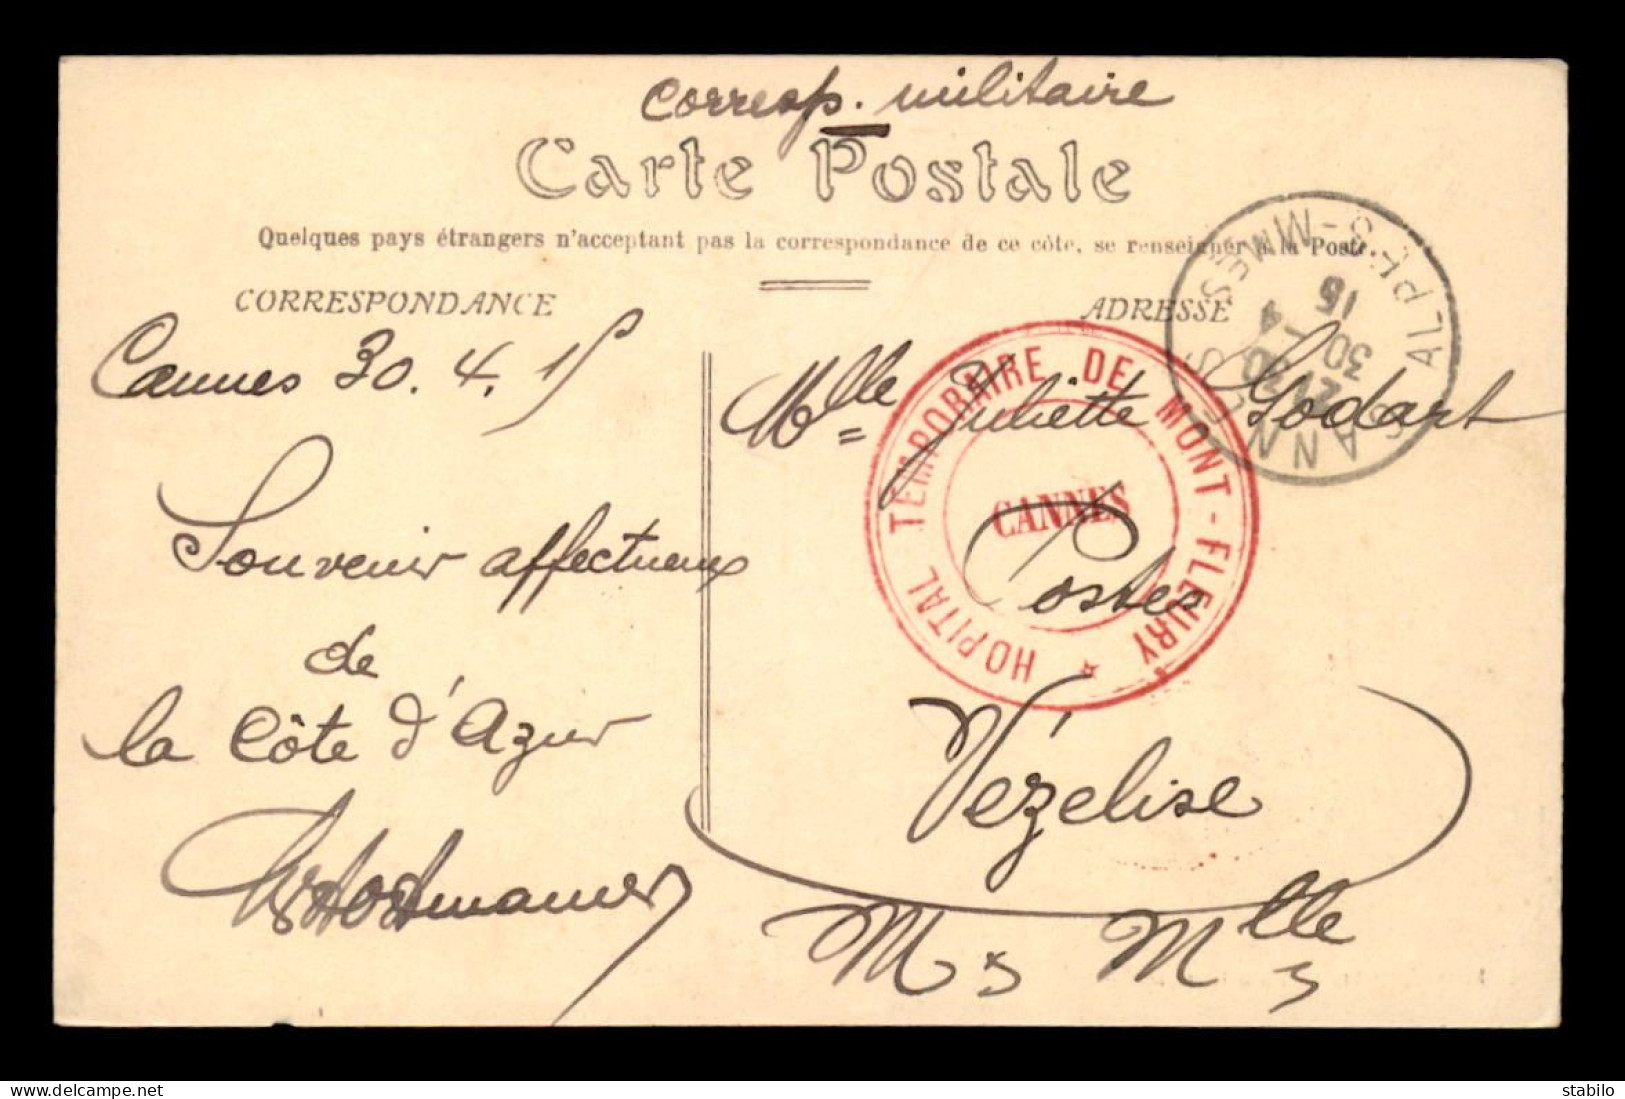 Corresp. militaire
Carte Postale
Quelques pays étrangers n'acceptant pas la correspondance de ce côté, se renseigner à la Poste.
CORRESPONDANCE
ADRESSE
Cannes 30.4.15
Souvenir affectueux
de
la Côte d'Azur
Mlle Juliette Godart
Postes
Vézelise
M & Mlle
HOPITAL TEMPORAIRE DE MONT-FLEURY
CANNES
CANNES
ALPES-MMES
30
4
15
delcampe.net
stabilo